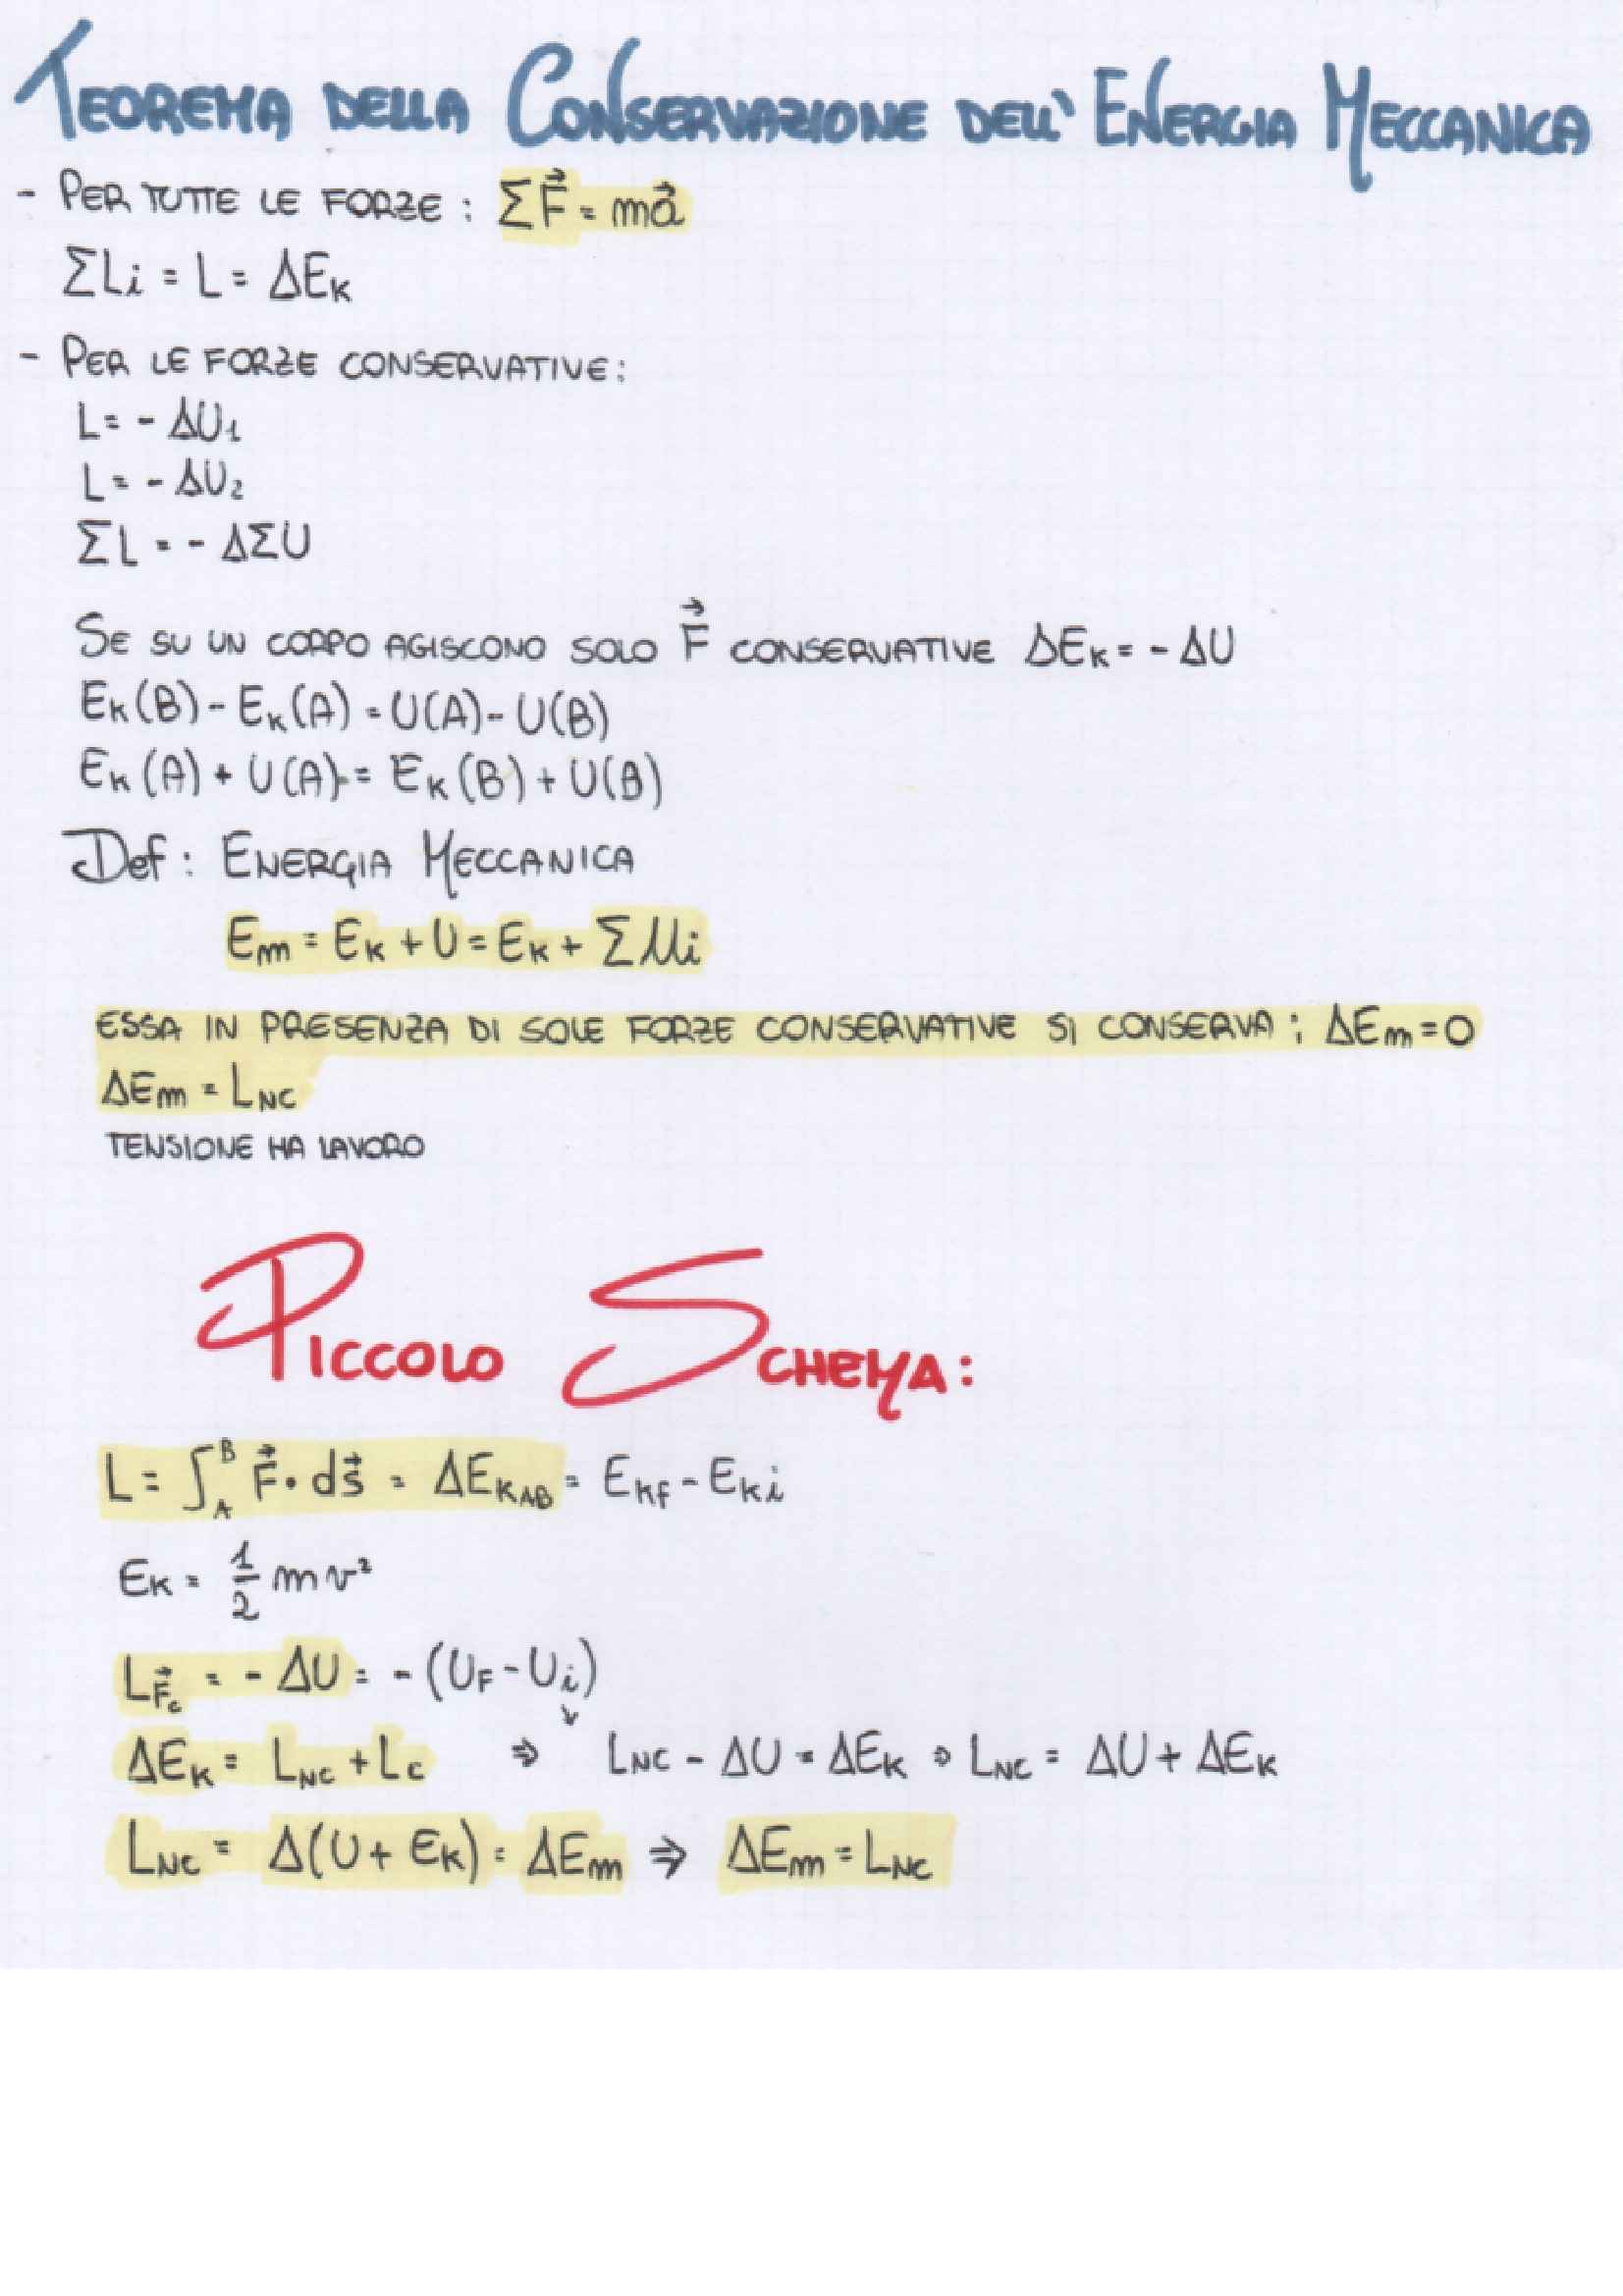 TEOREMA DELLA CONSERVAZIONE DELL' ENERGIA MECCANICA
- PER TUTTE LE FORZE : ΣF⃗ = ma⃗
ΣLi = L = ΔEk
- PER LE FORZE CONSERVATIVE:
L = - ΔU1
L = - ΔU2
ΣL = - ΔΣU
SE SU UN CORPO AGISCONO SOLO F⃗ CONSERVATIVE ΔEk = - ΔU
Ek(B) - Ek(A) = U(A) - U(B)
Ek(A) + U(A) = Ek(B) + U(B)
Def : ENERGIA MECCANICA
Em = Ek + U = Ek + ΣUi
ESSA IN PRESENZA DI SOLE FORZE CONSERVATIVE SI CONSERVA ; ΔEm = 0
ΔEm = LNC
TENSIONE HA LAVORO
PICCOLO SCHEMA:
L = ∫_A^B F⃗ · ds⃗ = ΔEkAB = Ekf - Eki
Ek = 1/2 mv²
LF⃗c = - ΔU = - (UF - Ui)
↘
ΔEk = LNC + Lc ⇒ LNC - ΔU = ΔEk ⇒ LNC = ΔU + ΔEk
LNC = Δ(U + Ek) = ΔEm ⇒ ΔEm = LNC